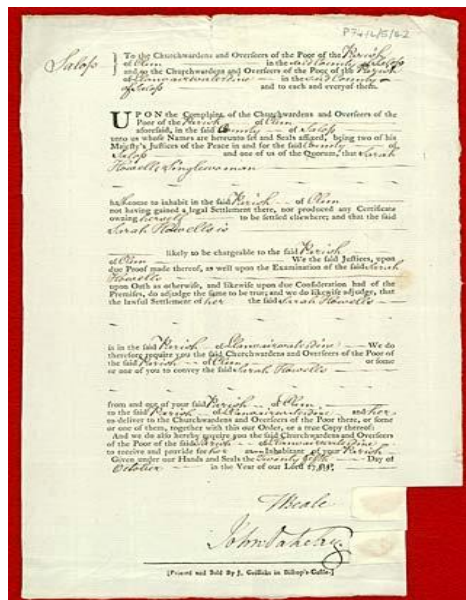 To the Churchwardens and Overseers of the Poor of the Parish
Salop of Clun in the said County of Salop
and to the Churchwardens and Overseers of the Poor of the Parish
of Llanvairwaterdine in the said County
of Salop and to each and every of them.
UPON the Complaint of the Churchwardens and Overseers of the
Poor of the Parish of Clun
aforesaid, in the said County of Salop
unto us whose Names are hereunto set and Seals affixed, being two of his
Majesty's Justices of the Peace in and for the said County of
Salop and one of us of the Quorum, that Sarah
Howells Singlewoman
come to inhabit in the said Parish of Clun
not having gained a legal Settlement there, nor produced any Certificate
owning herself to be settled elsewhere; and that the said
Sarah Howells is
likely to be chargeable to the said Parish
of Clun We the said Justices, upon
due Proof made thereof, as well upon the Examination of the said Sarah
Howells
upon Oath as otherwise, and likewise upon due Consideration had of the
Premises, do adjudge the same to be true; and we do likewise adjudge, that
the lawful Settlement of her the said Sarah Howells
is in the said Parish of Llanvairwaterdine We do
therefore require you the said Churchwardens and Overseers of the Poor of
the said Parish of Clun or some
or one of you to convey the said Sarah Howells
from and out of your said Parish of Clun
to the said Parish of Llanvairwaterdine and her
to deliver to the Churchwardens and Overseers of the Poor there, or some
or one of them, together with this our Order, or a true Copy thereof:
And we do also hereby require you the said Churchwardens and Overseers
of the Poor of the said Parish of Llanvairwaterdine
to receive and provide for her as Inhabitant of your Parish
Given under our Hands and Seals the Twenty fifth Day of
October in the Year of our Lord
Beale
John
[Printed and Sold By J. Griffiths in Bishop's-Castle.]